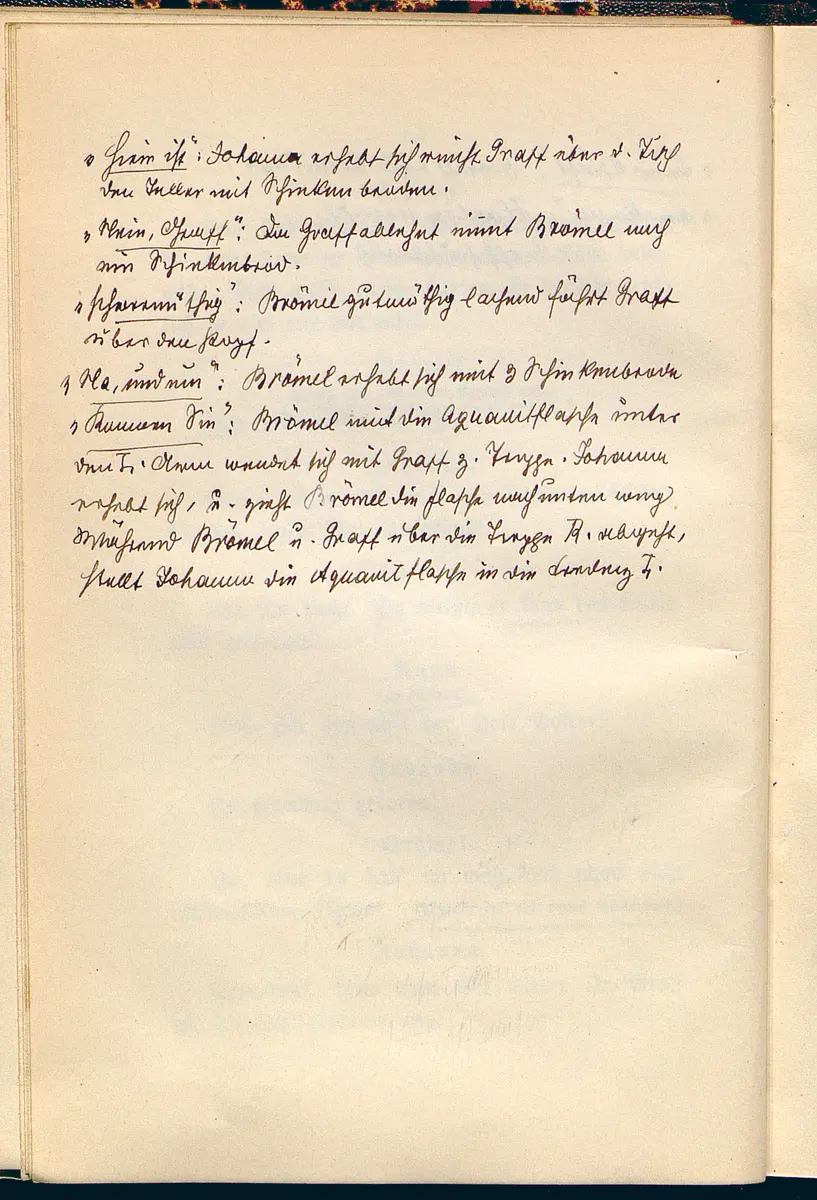 „Hier ist“: Johanna erhebt sich reicht Graff über d. Tisch
den Teller mit Schinkenbroden.
„Nein, Graff“: Da Graff ablehnt nimt Brömel noch
ein Schinkenbrod.
„schwermüthig“: Brömel gutmüthig lachend fährt Graff
über den Kopf.
„Na, und nun“: Brömel erhebt sich mit 3 Schinkenbrode
„Kommen Sie“: Brömel nimt die Aquavitflasche unter
den L. Arm wendet sich mit Graff z. Treppe. Johanna
erhebt sich, u. zieht Brömel die Flasche nach unten weg
Während Brömel u. Graff über die Treppe R. abgeht,
stellt Johanna die Aquavitflasche in die Credenz L.